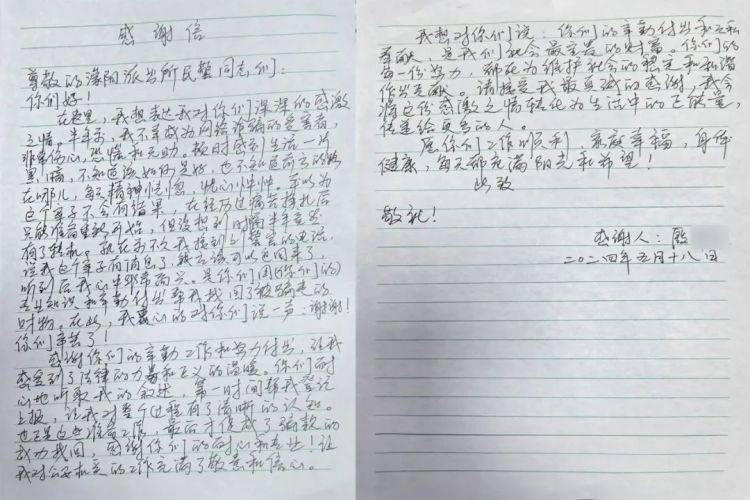 感谢信
尊敬的濛阳派出所民警同志们：
你们好！
在这里，我想表达我对你们深深的感激
之情。半年前，我不幸成为网络诈骗的受害者，
非常伤心，恐慌和无助。顿时感到生活一片
黑暗，不知道该如何是好，也不知道前方的路
在哪儿，每天精神恍惚，忧心忡忡。本以为
这个案子不会有结果，在经历过痛苦挣扎后
只能准备重新开始，但没想到时隔半年竟
有了转机。就在前不久我接到了警官的电话，
说我这个案子有消息了，钱应该可以追回来了，
听到后我心里非常高兴。是你们用(你们的)
专业知识和辛勤付出帮我找回了被骗走的
财物。在此，我衷心的对你们说一声：谢谢！
你们辛苦了！
感谢你们的辛勤工作和努力付出，让我
感受到了法律的力量和正义的温暖。你们耐
心地听取我的叙述，第一时间帮我登记
上报，让我对整个过程有了清晰的认知。
也正是这些准备工作，最后才促成了骗款的
成功找回，感谢你们的耐心和专业！让
我对公安机关的工作充满了敬意和信心。
我想对你们说：你们的辛勤付出和无私
奉献，是我们社会最宝贵的财富。你们的
每一份努力，都在为维护社会的稳定和和谐
作出贡献。请接受我最真诚的感谢，我会
将这份感激之情转化为生活中的正能量，
传递给更多的人。
愿你们工作顺利，家庭幸福，身体
健康，每天都充满阳光和希望！
此致
敬礼！
感谢人：熊
二〇二四年五月十八日